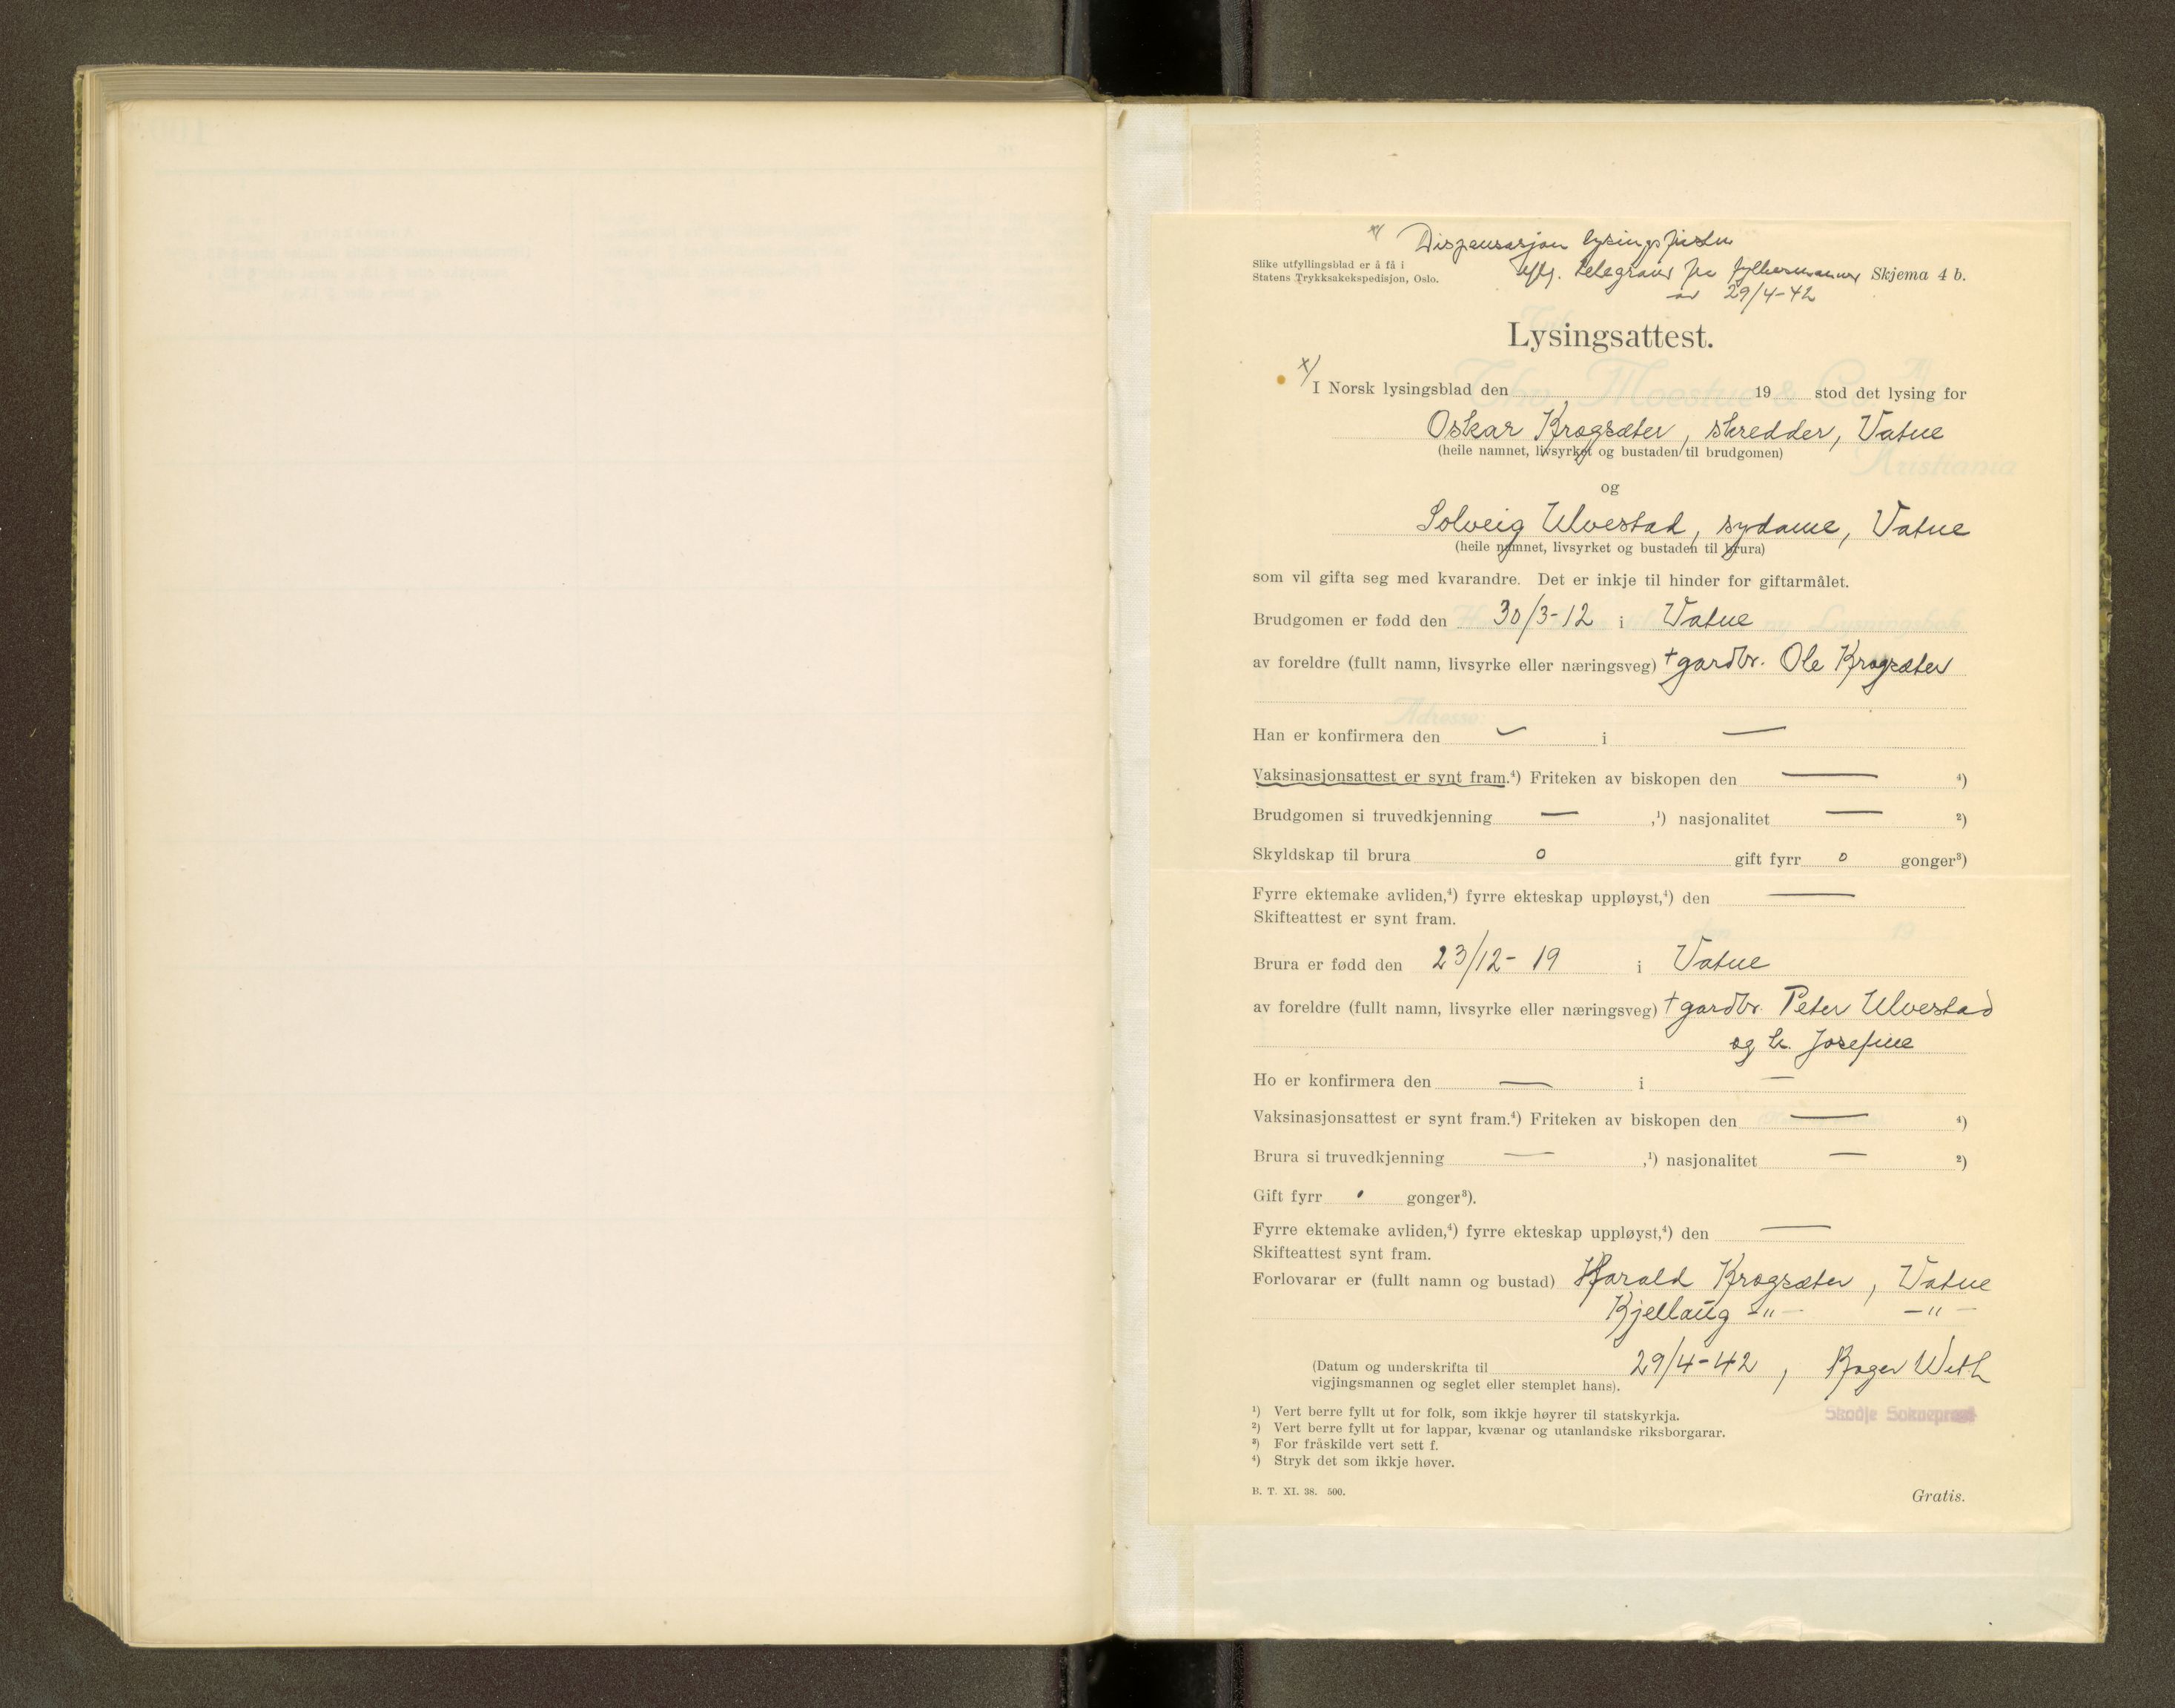 x/ Dispensasjon lysingsfristen
Slike utfyllingsblad er å få i
Statens Trykksakekspedisjon, Oslo.
iflg. telegram fra fylkesmannen
Skjema 4 b.
av 29/4-42
Lysingsattest.
x/
I Norsk lysingsblad den 19 stod det lysing for
Oskar Krogsæter, skredder, Vatne
(heile namnet, livsyrket og bustaden til brudgomen)
og
Solveig Ulvestad, sydame, Vatne
(heile namnet, livsyrket og bustaden til brura)
som vil gifta seg med kvarandre. Det er inkje til hinder for giftarmålet.
Brudgomen er fødd den 30/3-12 i Vatne
av foreldre (fullt namn, livsyrke eller næringsveg) † gardbr. Ole Krogsæter
Han er konfirmera den — i —
Vaksinasjonsattest er synt fram.⁴) Friteken av biskopen den — ⁴)
Brudgomen si truvedkjenning — ,¹) nasjonalitet — ²)
Skyldskap til brura 0 gift fyrr 0 gonger³)
Fyrre ektemake avliden,⁴) fyrre ekteskap uppløyst,⁴) den —
Skifteattest er synt fram.
Brura er fødd den 23/12-19 i Vatne
av foreldre (fullt namn, livsyrke eller næringsveg) † gardbr. Peter Ulvestad
og h. Josefine
Ho er konfirmera den — i —
Vaksinasjonsattest er synt fram.⁴) Friteken av biskopen den — ⁴)
Brura si truvedkjenning — ,¹) nasjonalitet — ²)
Gift fyrr 0 gonger³).
Fyrre ektemake avliden,⁴) fyrre ekteskap uppløyst,⁴) den —
Skifteattest synt fram.
Forlovarar er (fullt namn og bustad) Harald Krogsæter, Vatne
Kjellaug -"- -"-
(Datum og underskrifta til 29/4-42, Roger Weth
vigjingsmannen og seglet eller stemplet hans).
Skodje Sokneprest
¹) Vert berre fyllt ut for folk, som ikkje høyrer til statskyrkja.
²) Vert berre fyllt ut for lappar, kvænar og utanlandske riksborgarar.
³) For fråskilde vert sett f.
⁴) Stryk det som ikkje høver.
B. T. XI. 38. 500.
Gratis.